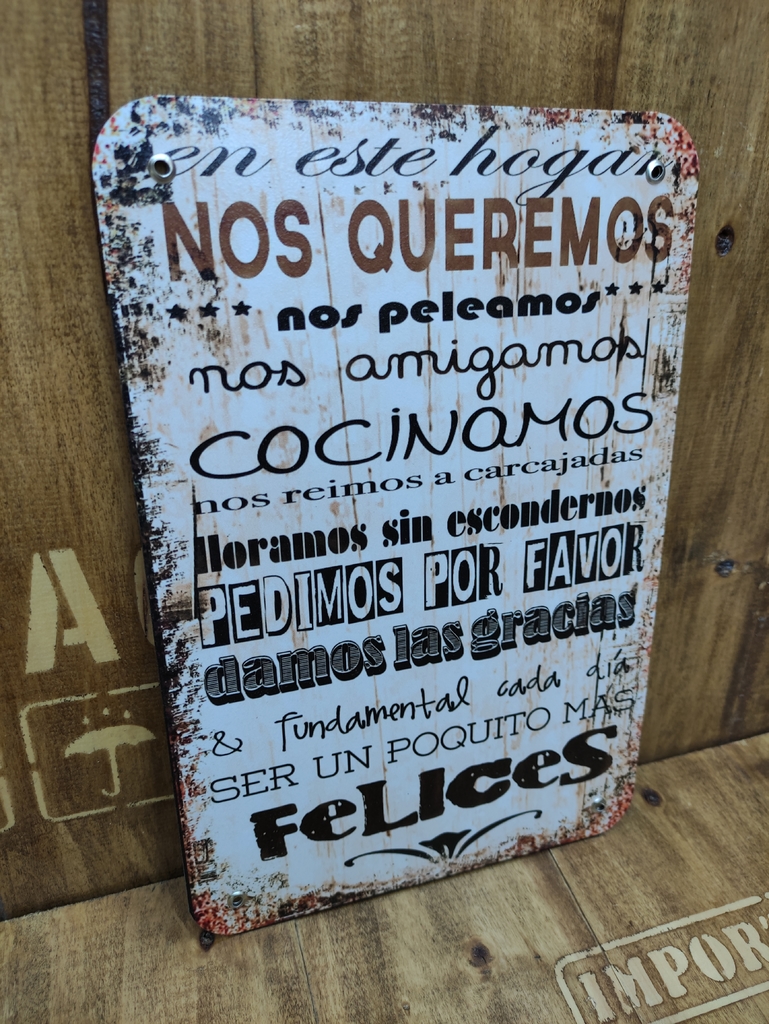 en este hogar
NOS QUEREMOS
*** nos peleamos ***
nos amigamos
COCINAMOS
nos reimos a carcajadas
lloramos sin escondernos
PEDIMOS POR FAVOR
damos las gracias
& fundamental cada día
SER UN POQUITO MÁS
FELICES